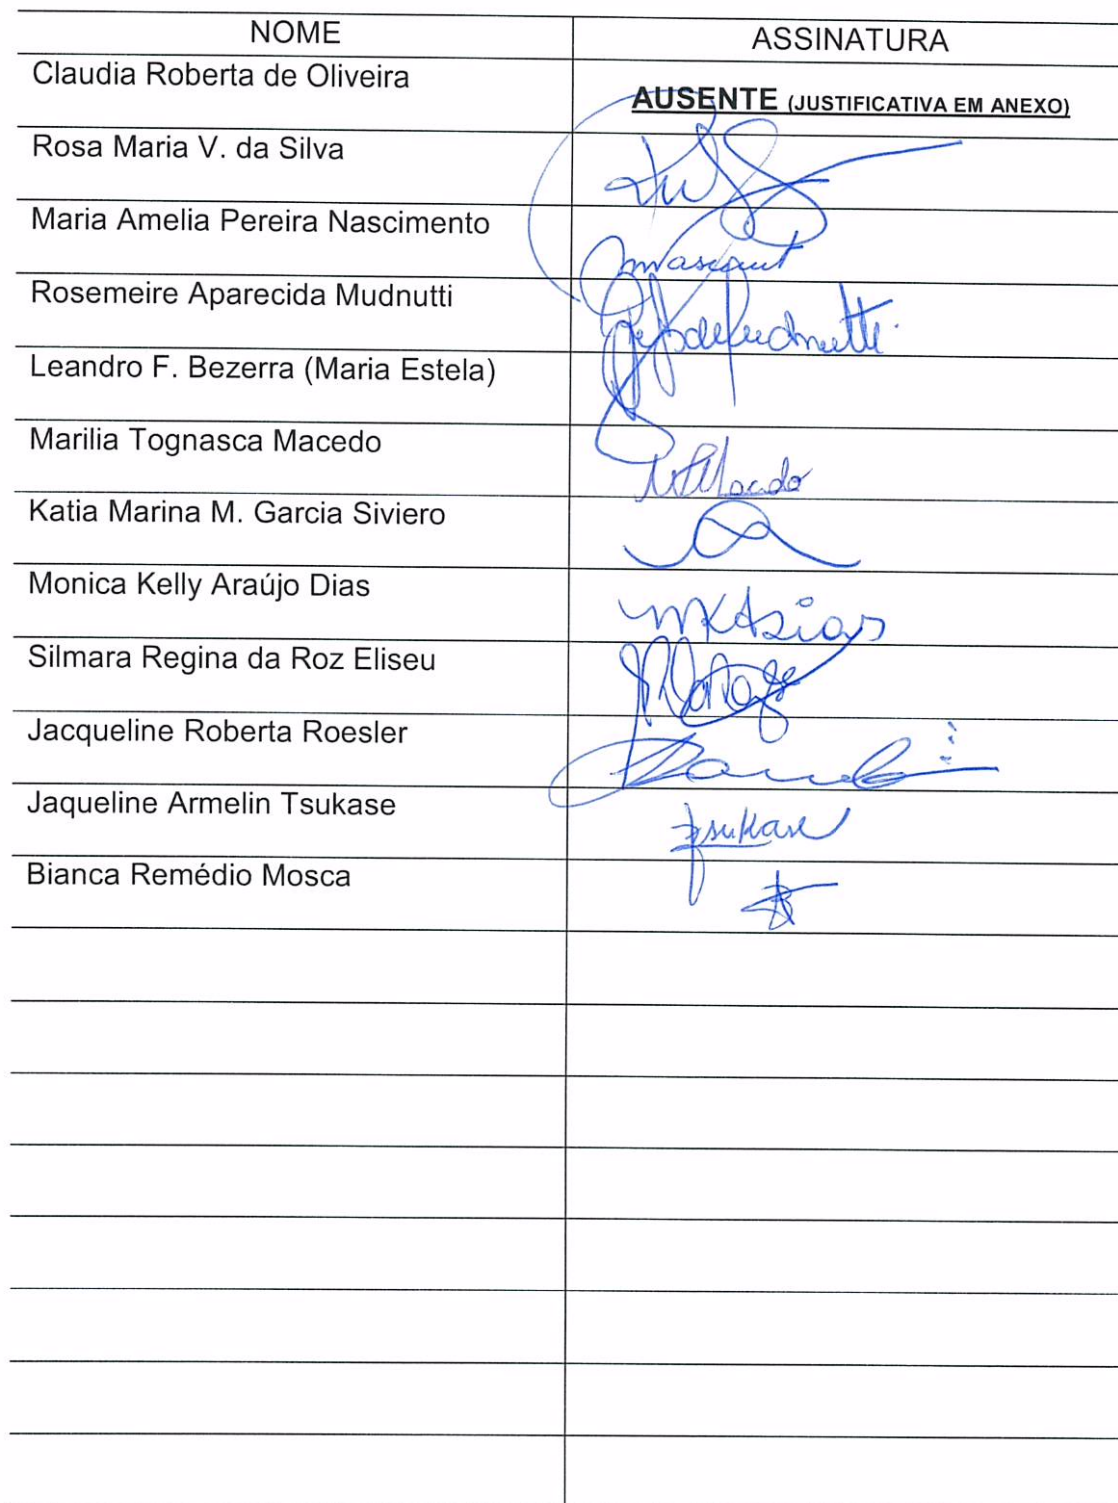 NOME ASSINATURA
Claudia Roberta de Oliveira AUSENTE (JUSTIFICATIVA EM ANEXO)
Rosa Maria V. da Silva
Maria Amelia Pereira Nascimento
Rosemeire Aparecida Mudnutti
Leandro F. Bezerra (Maria Estela)
Marilia Tognasca Macedo
Katia Marina M. Garcia Siviero
Monica Kelly Araújo Dias MKADias
Silmara Regina da Roz Eliseu
Jacqueline Roberta Roesler
Jaqueline Armelin Tsukase
Bianca Remédio Mosca